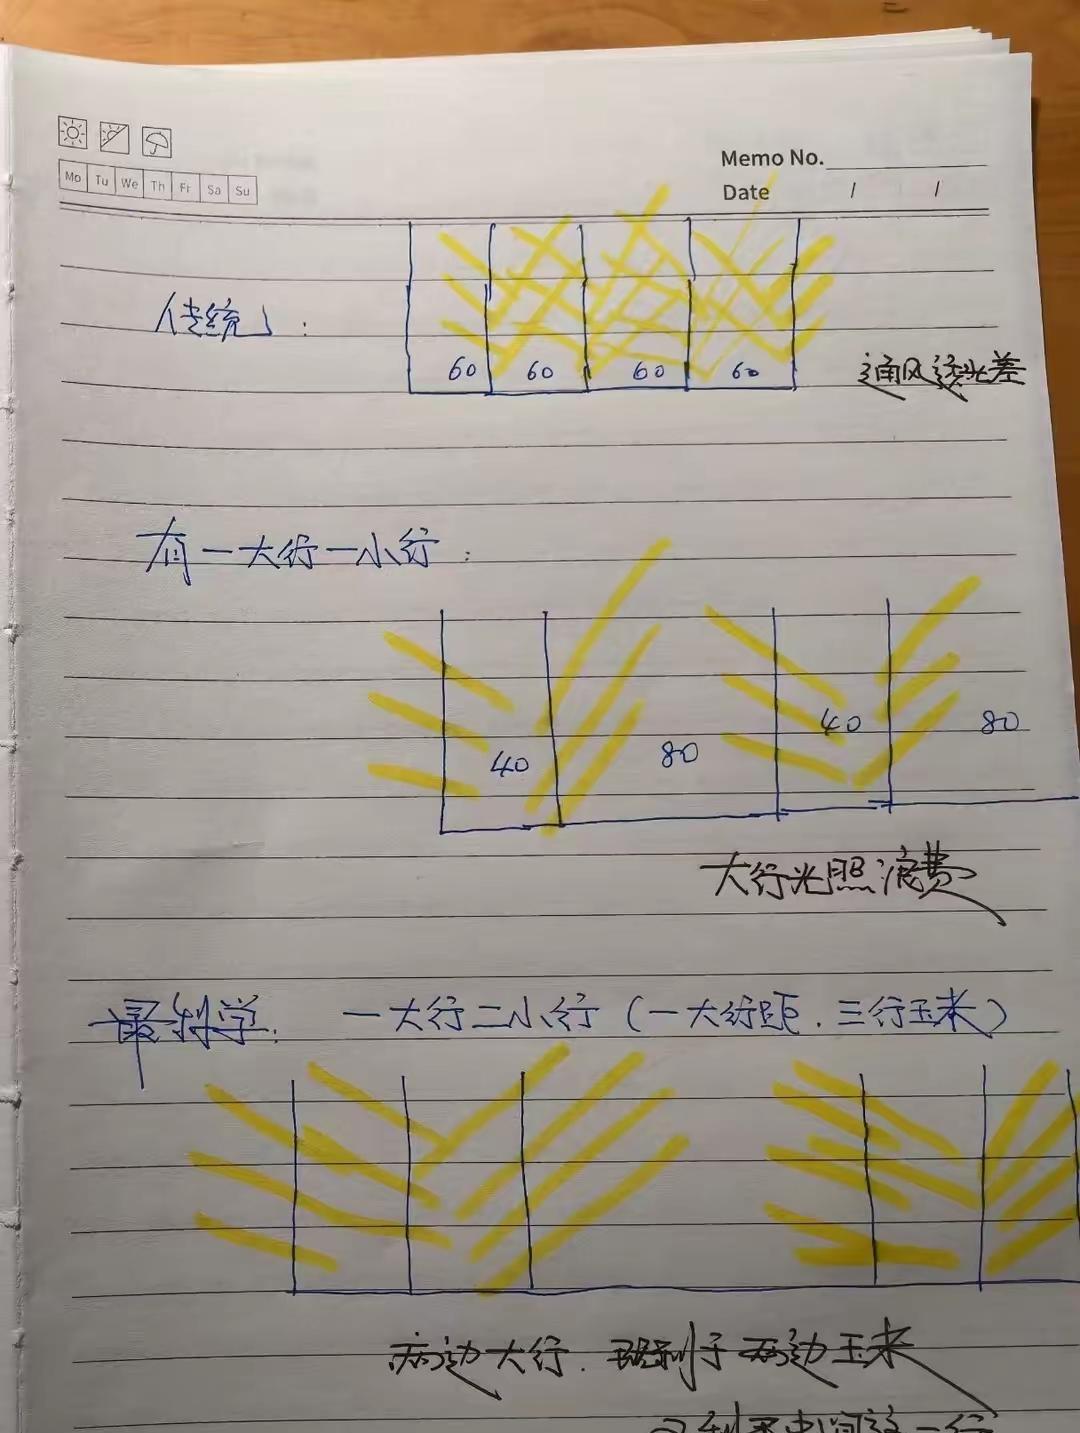 Memo No.
Mo Tu We Th Fr Sa Su
Date / /
传统：
60 60 60 60
通风透光差
有一大行一小行：
40 80 40 80
大行光照浪费
最科学： 一大行二小行（一大行距．三行玉米）
两边大行． 利于两边玉米
又利于中间这一行